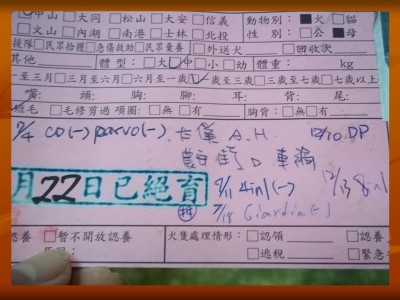 中山 □大同 □松山 □大安 □信義
□文山 □內湖 □南港 □士林 □北投
動物別：■犬 □貓
性 別：□公 ■母
援隊 □民眾拾獲 □急傷救助 □民眾棄養 □外送犬 □回收次
其他
體型：□大 中 □小 □幼 體重： kg
一至三月 □三月至六月 □六月至一歲 一歲至三歲 □三歲至七歲 □七歲以上
嘴： 頭： 胸： 腳： 耳： 背： 尾：
短毛 □毛修剪過 項圈：□無 □有 胸背：□無 □有
9/4 CO(-) parvo(-). A.H. 12/10 DP
車禍
月22日已絕育 9/11 4in1(-) 12/13 8in1
9/18 Giardia(-)
認養 □暫不開放認養 犬隻處理情形：□認領 □認養
原因： □逃脫 □緊急